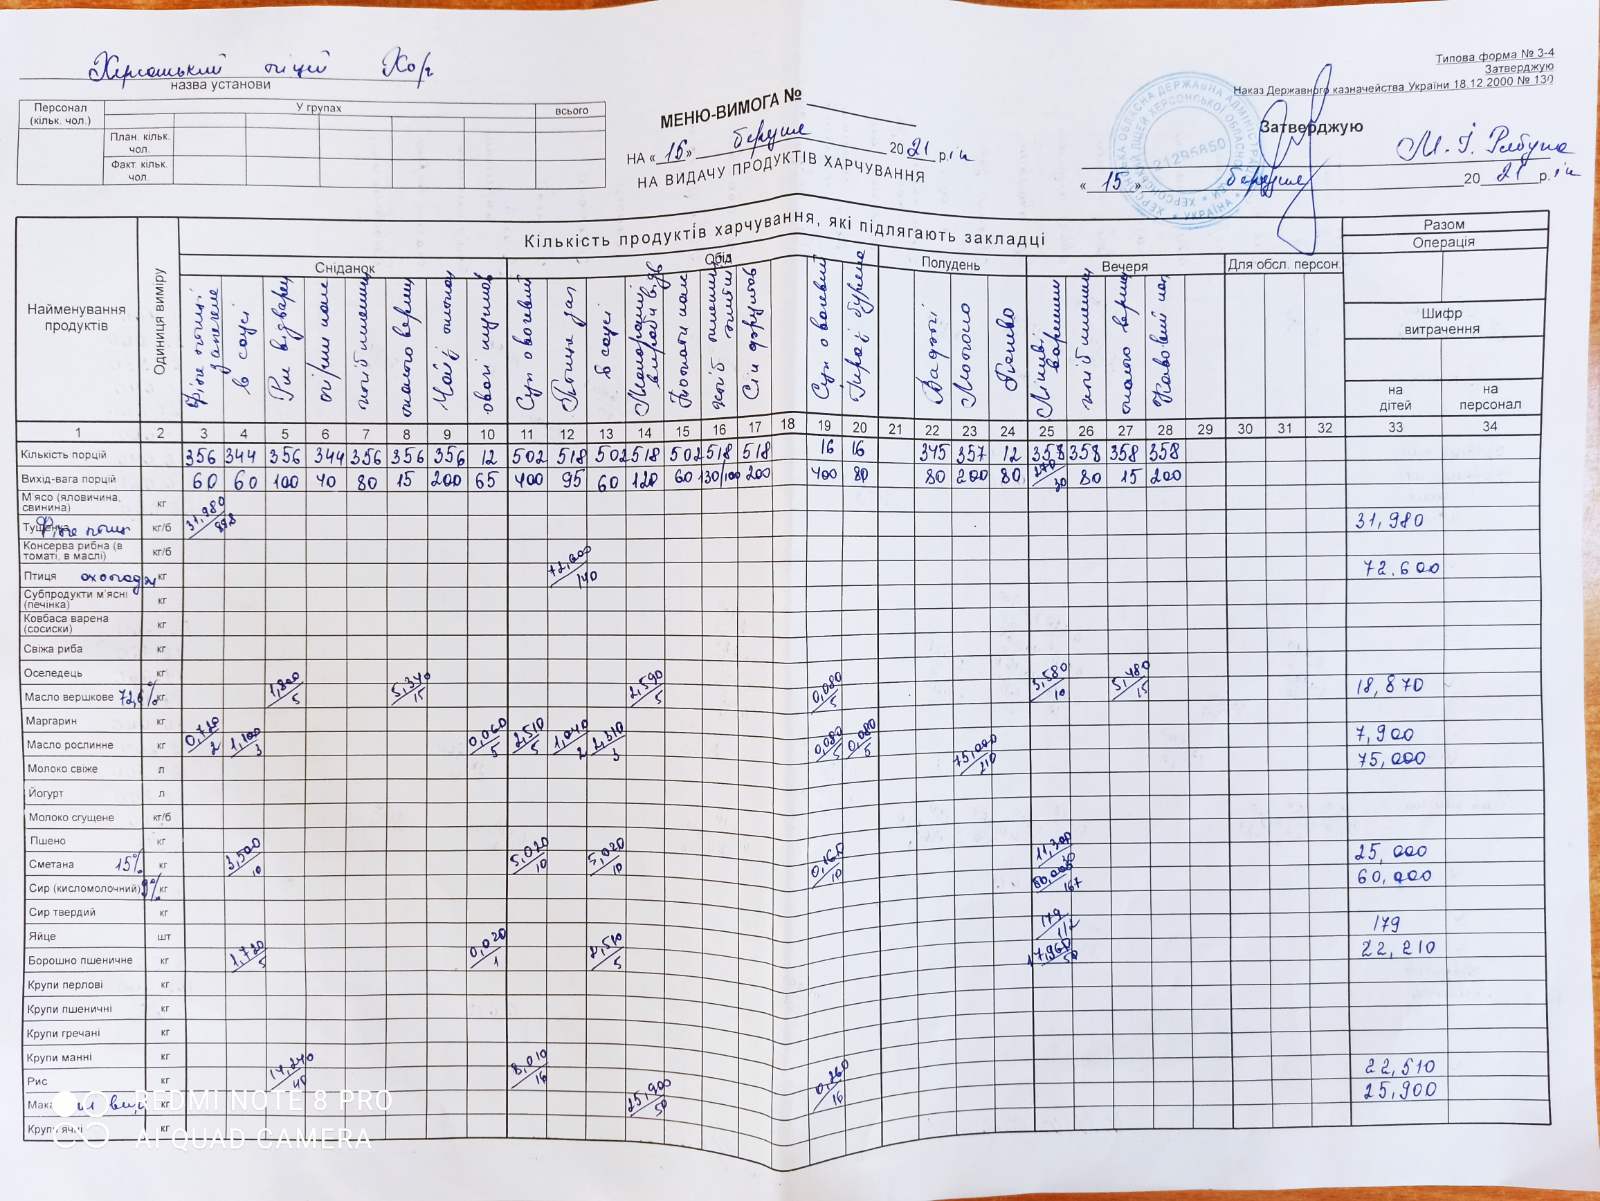 Типова форма № З-4
Затверджую
Наказ Державного казначейства України 18.12.2000 № 130
Херсонський ліцей ХОР
назва установи
Персонал (кільк. чол.) У групах всього
План. кільк. чол.
Факт. кільк. чол.
МЕНЮ-ВИМОГА №
НА « 15 » березня 20 21 р.
НА ВИДАЧУ ПРОДУКТІВ ХАРЧУВАННЯ
Затверджую
М. І. Рябуха
« 15 » березня 20 21 р.
21295850
УКРАЇНА
Найменування продуктів
Одиниця виміру
Кількість продуктів харчування, які підлягають закладці
Разом
Операція
Сніданок Обід Полудень Вечеря Для обсл. персон.
Шифр витрачення
на дітей на персонал
Філе птиці
в соусі Рис відварний
Суп овочевий Птиця
в соусі
Суп овочевий
Молоко
Печиво
1 2 3 4 5 6 7 8 9 10 11 12 13 14 15 16 17 18 19 20 21 22 23 24 25 26 27 28 29 30 31 32 33 34
Кількість порцій 356 344 356 344 356 356 356 12 502 518 502 518 502 518 518 16 16 345 357 12 358 358 358 358
Вихід-вага порцій 60 60 100 40 80 15 200 65 400 95 60 120 60 130/100 200 400 80 80 200 80 270/30 80 15 200
М'ясо (яловичина, свинина) кг
Тушенка Філе птиці кг/б 31,980 31,980
Консерва рибна (в томаті, в маслі) кг/б
Птиця охолодж кг 72,600/140 72.600
Субпродукти м'ясні (печінка) кг
Ковбаса варена (сосиски) кг
Свіжа риба кг
Оселедець кг
Масло вершкове 72,6% кг 1,800/5 5,340/15 2,590/5 0,080/5 3,580/10 5,480/15 18,870
Маргарин кг
Масло рослинне кг 0,720/2 1,100/3 0,060/5 2,510/5 1,040/2 2,310/3 0,080/5 0,080/5 7,900
Молоко свіже л 75,000/210 75,000
Йогурт л
Молоко сгущене кг/б
Пшено кг
Сметана 15% кг 3,500/10 5,020/10 5,020/10 0,160/10 11,300/30 25,000
Сир (кисломолочний) 9% кг 60,000/167 60,000
Сир твердий кг
Яйце шт 179/1/2 179
Борошно пшеничне кг 1,720/5 0,020/1 2,510/5 17,960/50 22,210
Крупи перлові кг
Крупи пшеничні кг
Крупи гречані кг
Крупи манні кг
Рис кг 14,240/40 8,010/16 0,260/16 22,510
Мака кг 25,900/50 25,900
Крупи ячні кг
REDMI NOTE 8 PRO
AI QUAD CAMERA